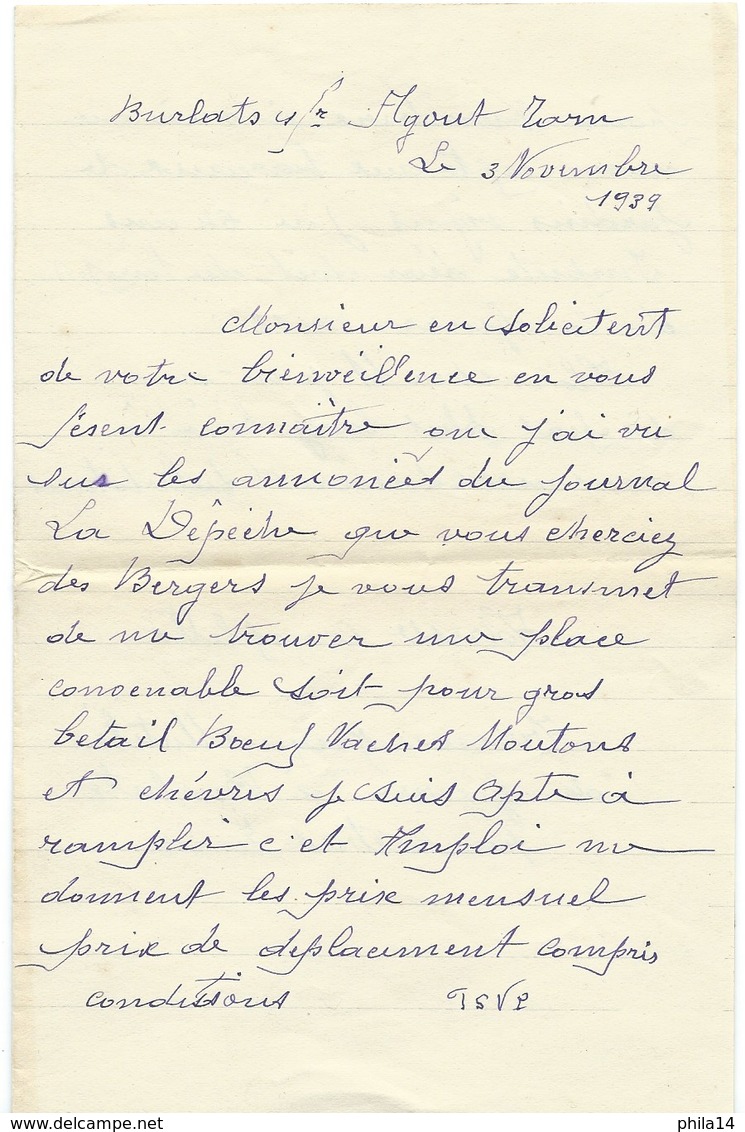 Burlats s/r Agout Tarn
Le 3 Novembre
1939
Monsieur en solicitent
de votre bienveillence en vous
fesent connaître que j'ai vu
sur les annonces du journal
La Dépêche que vous cherciez
des Bergers je vous transmet
de me trouver une place
convenable soit pour gros
betail Boeuf Vaches Moutons
et chévres je suis Apte à
ramplir c'et Amploi me
donnent les prix mensuel
prix de déplacement compris
conditions TSVP
delcampe.net
phila14